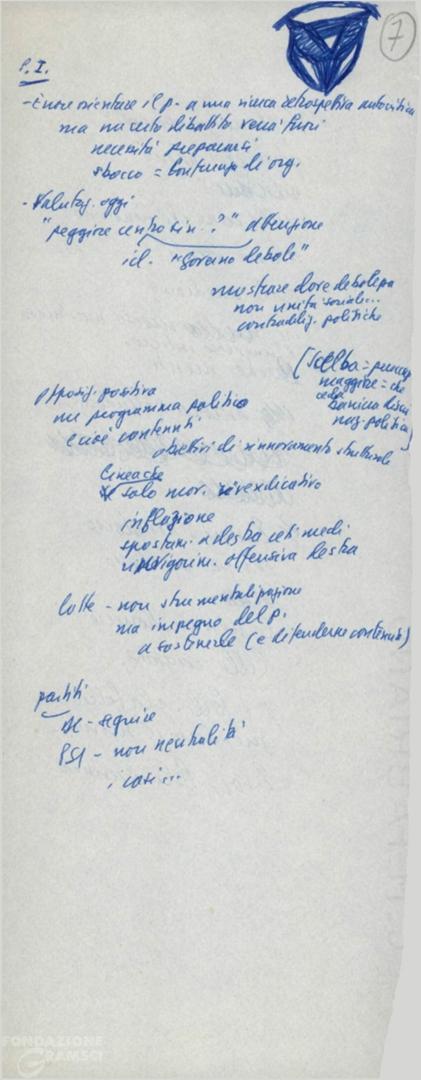 7
P.I.
- Errore orientare il p. a una ricerca retrospettiva autocritica
ma un certo dibattito verrà fuori
necessità prepararsi
sbocco = Conferenza di org.
- Valutaz. oggi
"peggiore centro sin.?" attenzione
id. "Governo debole"
mostrare dove debolezza
non unità sociale...
contraddiz. politiche
[Scelba =
maggiore = che
ceda
naz. politica]
Opposiz. positiva
un programma politico
e cioè contenuti
obiettivi di rinnovamento strutturale
Lineache
solo mov. rivendicativo
inflazione
spostam. a destra ceti medi
rinvigorim. offensiva destra
Lotte - non strumentalizzazione
ma impegno del p.
a sostenerle (e difenderne contenuti)
partiti
DC - seguire
PSI - non neutralità
i casi...
FONDAZIONE
GRAMSCI